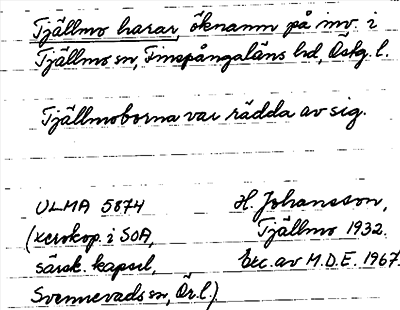 Tjällmo harar, öknamn på inv. i
Tjällmo sn, Finspångaläns hd, Östg. l.
Tjällmoborna var rädda av sig.
ULMA 5874
(xerokop. i SOA,
särsk. kapsel,
Svennevads sn, Ör.l.)
H. Johansson,
Tjällmo 1932.
Exc. av M.D.E. 1967.